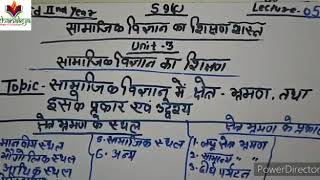 chanakya
d IInd Year
S9(C)
Lecture-05
सामाजिक विज्ञान का शिक्षण शास्त्र
Unit-3
सामाजिक विज्ञान का शिक्षण
Topic- सामाजिक विज्ञान में क्षेत्र-भ्रमण, तथा
इसके प्रकार एवं उद्देश्य
क्षेत्र भ्रमण के स्थल
क्षेत्र भ्रमण के प्रकार
भौगोलिक स्थल
आर्थिक स्थल
5. सामाजिक स्थल
6. अन्य
1. लघु क्षेत्र भ्रमण
2. सामान्य " "
3. दीर्घ पर्यटन
PowerDirector